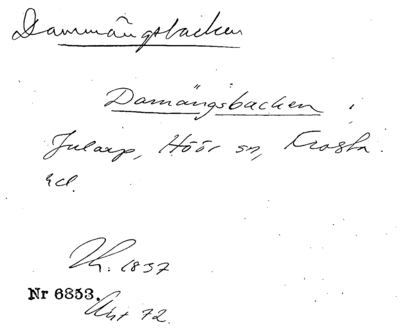 Dammängsbacken
Damängsbacken i
Jularp, Höör sn, Frosta
hd.
Th. 1857
Nr 6353.
Akt 72.